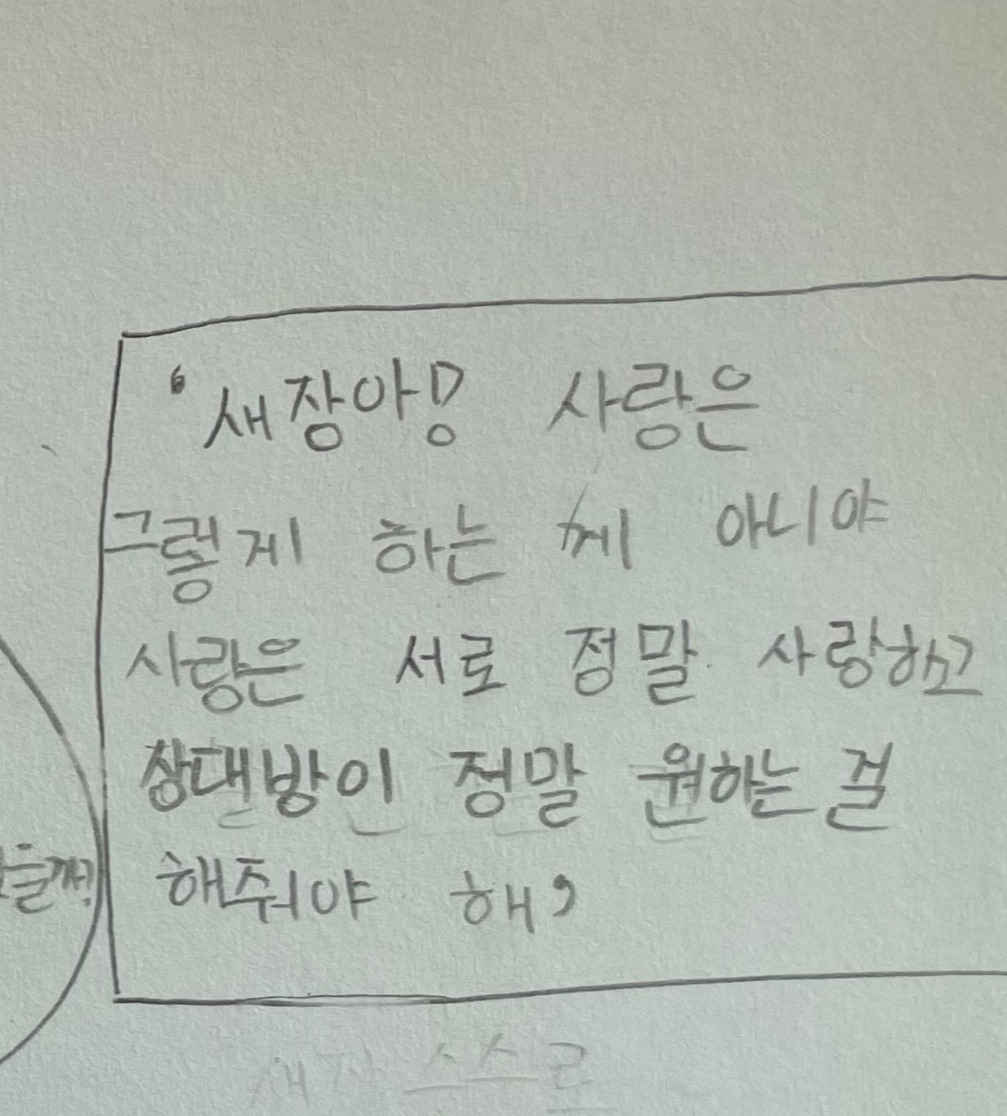 ‘새장아! 사랑은
그렇게 하는 게 아니야
사랑은 서로 정말 사랑하고
상대방이 정말 원하는 걸
해줘야 해’